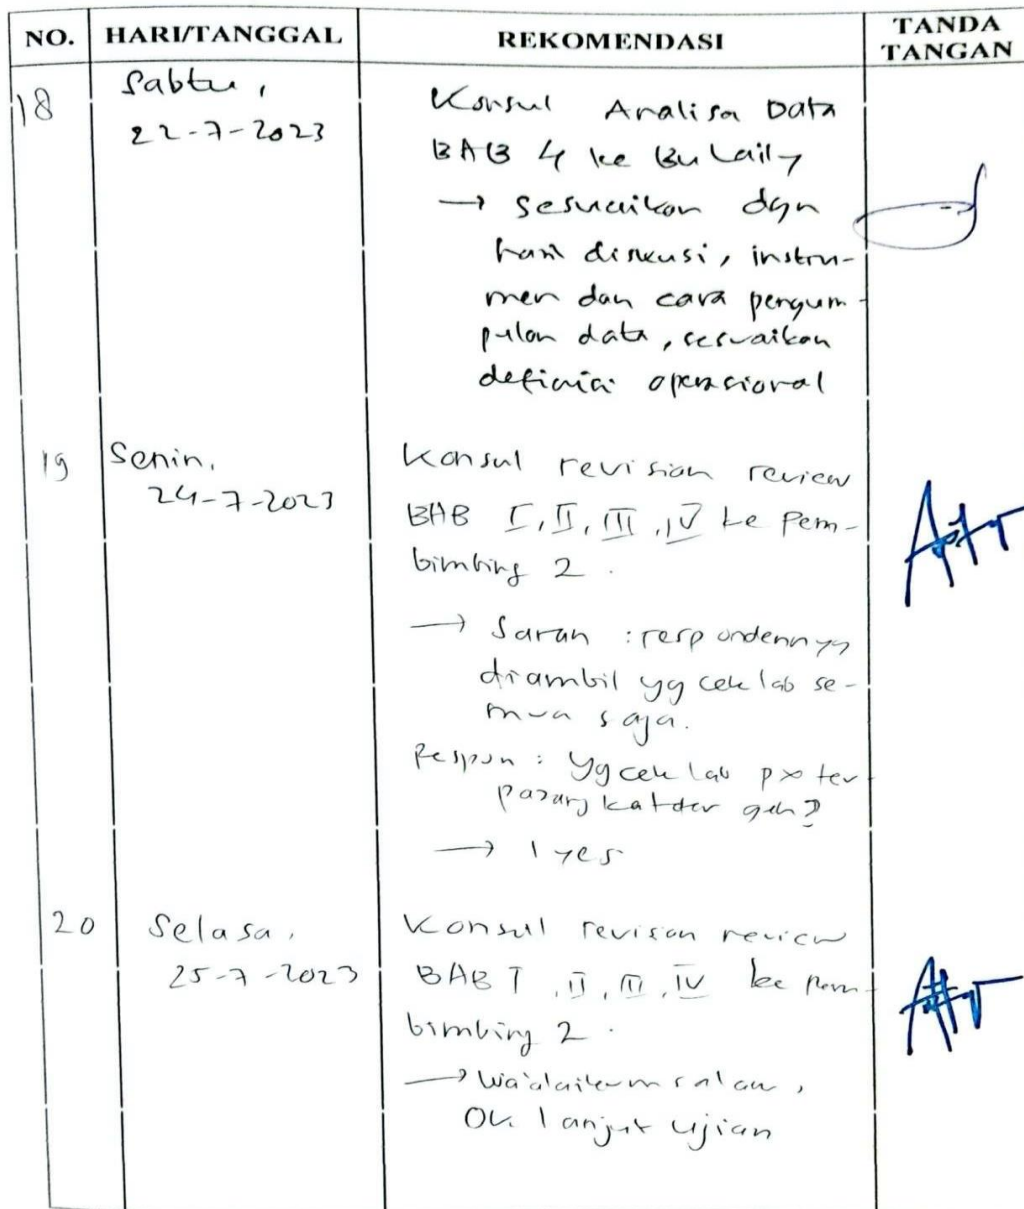 NO. HARI/TANGGAL REKOMENDASI TANDA TANGAN
18 Sabtu, 22-7-2023
Konsul Analisa Data
BAB 4 ke Bu Laily
→ sesuaikan dgn
hasil diskusi, instru-
men dan cara pengum-
pulan data, sesuaikan
definisi operasional
19 Senin, 24-7-2023
Konsul revision review
BAB I, II, III, IV ke Pem-
bimbing 2.
→ Saran : respondennya
diambil yg cek lab se-
mua saja.
Respon : Yg cek lab px ter
pasang kateter
→ 1 yes
20 Selasa, 25-7-2023
Konsul revision review
BAB I, II, III, IV ke Pem-
bimbing 2.
→ Wa'alaikumsalam,
Ok lanjut ujian